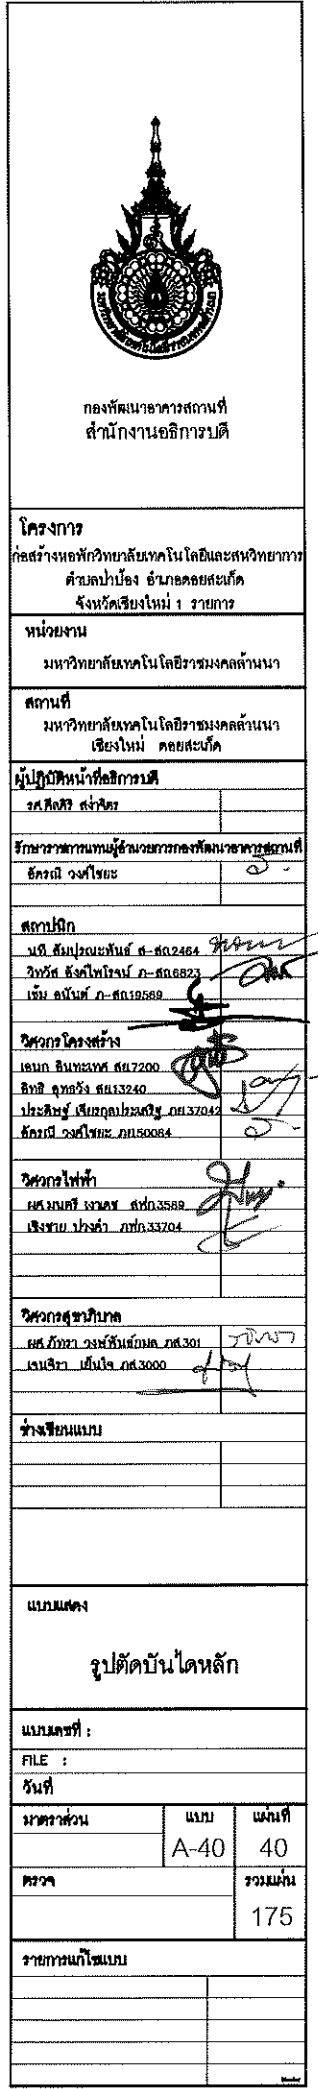 กองพัฒนาอาคารสถานที่
สำนักงานอธิการบดี
โครงการ
ก่อสร้างหอพักวิทยาลัยเทคโนโลยีและสหวิทยาการ
ตำบลป่าป้อง อำเภอดอยสะเก็ด
จังหวัดเชียงใหม่ 1 รายการ
หน่วยงาน
มหาวิทยาลัยเทคโนโลยีราชมงคลล้านนา
สถานที่
มหาวิทยาลัยเทคโนโลยีราชมงคลล้านนา
เชียงใหม่ ดอยสะเก็ด
ผู้ปฏิบัติหน้าที่อธิการบดี
รศ.ศีลศิริ สง่าจิตร
รักษาราชการแทนผู้อำนวยการกองพัฒนาอาคารสถานที่
อัครณี วงศ์ไชยะ
สถาปนิก
นที สัมปุรณะพันธ์ ส-สถ.2464
วิทวัส อังค์ไพโรจน์ ภ-สถ.6823
เข้ม อนันต์ ภ-สถ19569
วิศวกรโครงสร้าง
เอนก อินทะเทศ สย.7200
อิทธิ อุทธวัง สย13240
ประดิษฐ์ เจียรกุลประเสริฐ ภย.37042
อัครณี วงศ์ไชยะ ภย.50084
วิศวกรไฟฟ้า
ผศ.มนตรี เงาเดช สฟก.3589
เชิงชาย ปวงคำ ภฟก.33704
วิศวกรสุขาภิบาล
ผศ.ภัทรา วงษ์พันธ์กมล ภส.301
เจนจิรา เย็นใจ ภส.3000
ช่างเขียนแบบ
แบบแสดง
รูปตัดบันไดหลัก
แบบเลขที่ :
FILE :
วันที่
มาตราส่วน แบบ แผ่นที่
A-40 40
ตรวจ รวมแผ่น
175
รายการแก้ไขแบบ